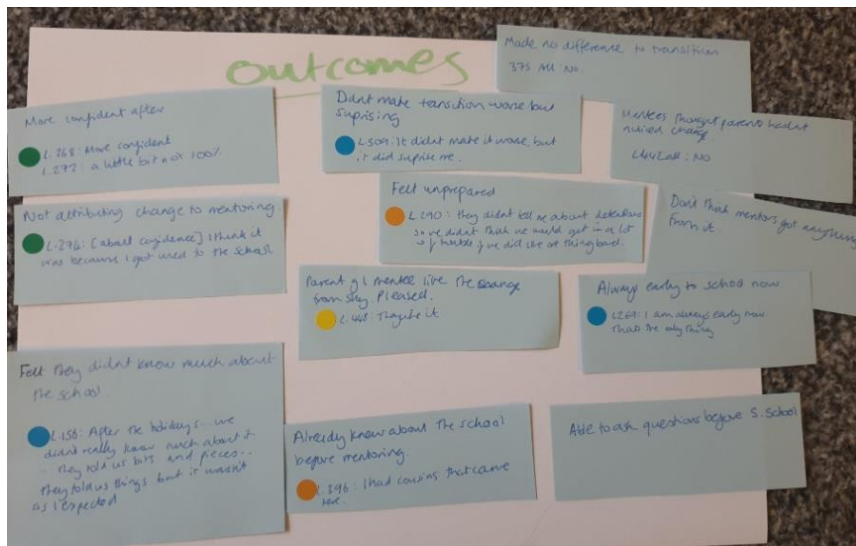 outcomes
Made no difference to transition
375 All: No.
More confident after
L.268: More confident
L.272: a little bit not 100%
Didnt make transition worse but
suprising
L309: It didnt make it worse, but
it did suprise me.
Mentees thought parents hadnt
noticed change.
L442 all: NO
Not attributing change to mentoring
L.274: [about confidence] I think it
was because I got used to the school
Felt unprepared
L290: they didnt tell me about detentions
so we didnt think we would get in a lot
of trouble if we did like one thing bad.
Dont think mentors got anything
from it.
Parent of 1 mentee like the change
from shy. Pleased.
L.448: They like it
Always early to school now
L269: I am always early now
Thats the only thing
Felt they didnt know much about
the school.
L.158: After the holidays... we
didnt really know much about it
.. they told us bits and pieces..
they told us things but it wasn't
as I expected
Already knew about the school
before mentoring.
L.396: I had cousins that came
here.
Able to ask questions before S. School